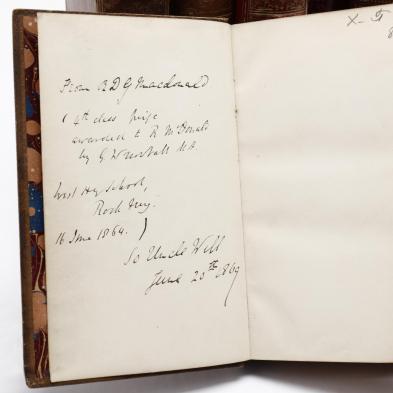 From R D G Macdonald
( 4th class prize
awarded to R McDonald
by G W M.A.
West Hy School,
Rock Ferry.
16 June 1864. )
To Uncle Will
June 20th 1869
X-5